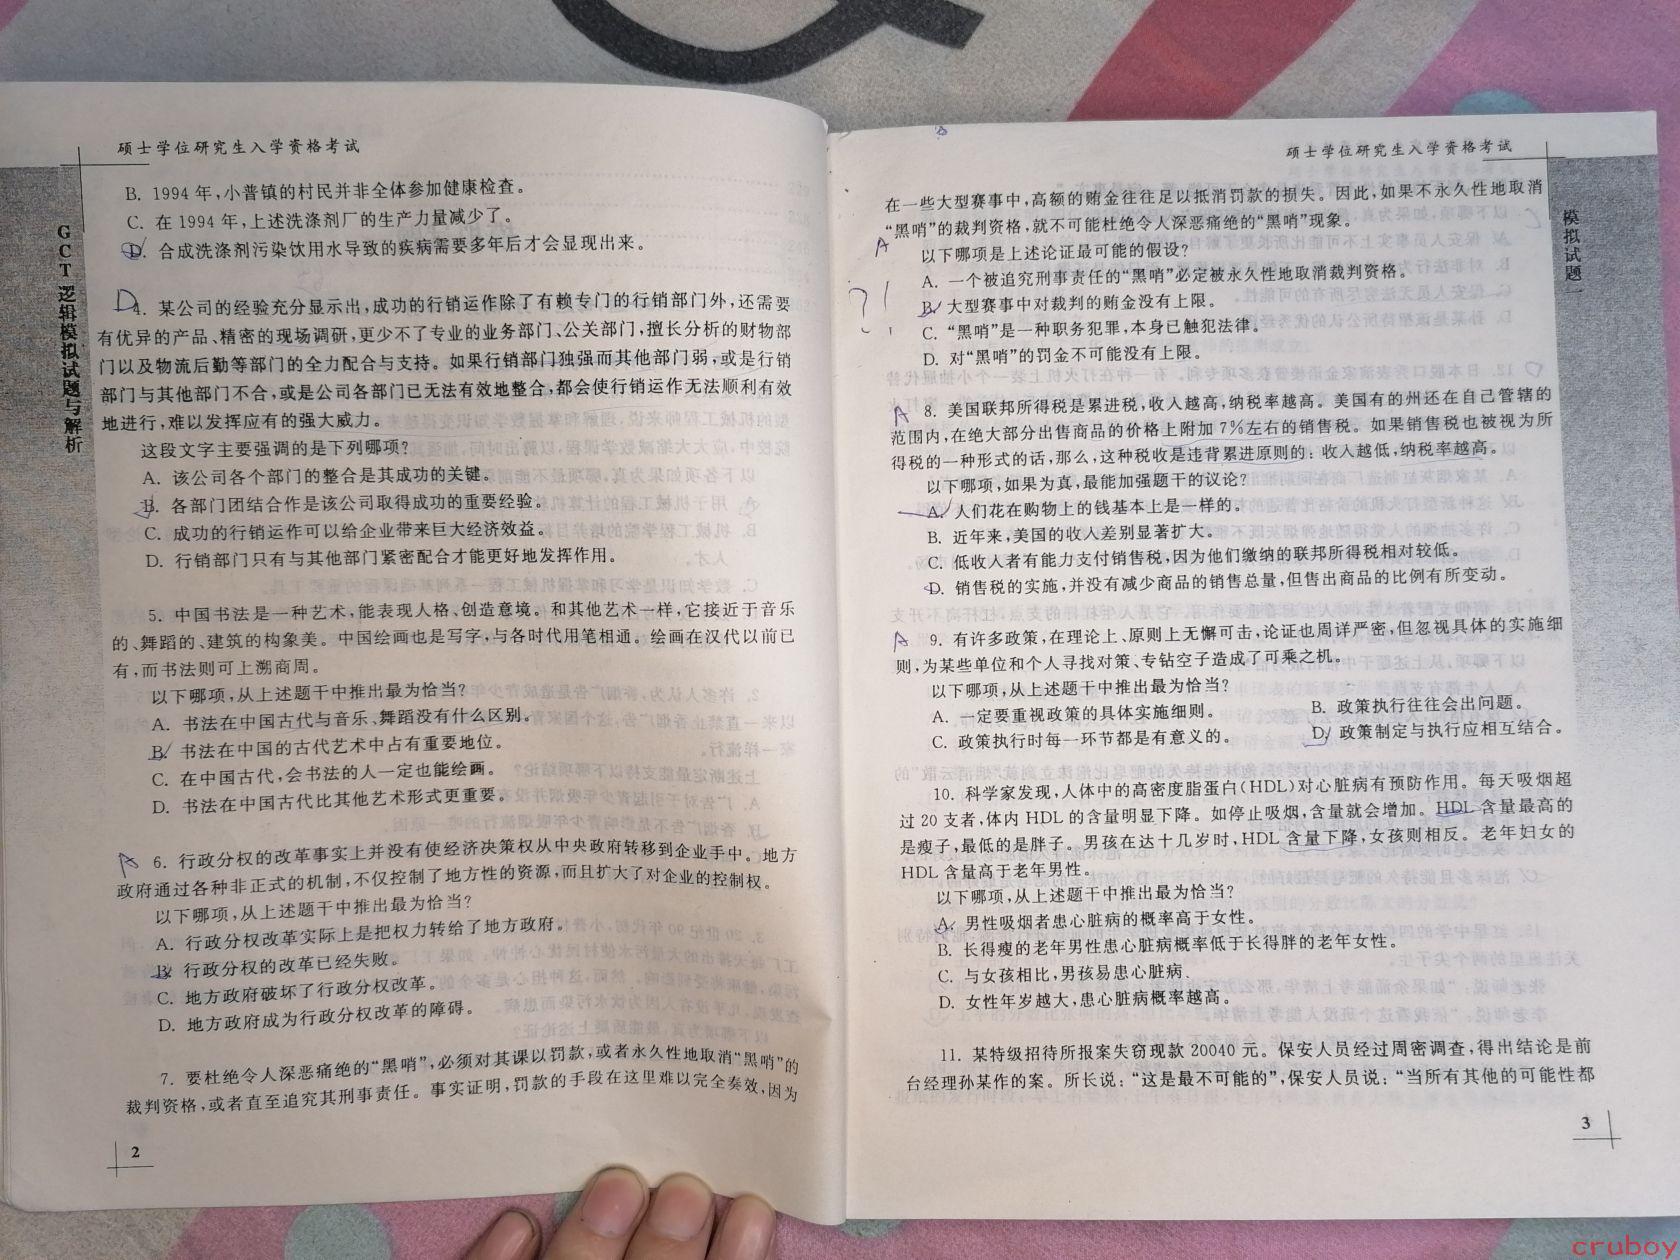 硕士学位研究生入学资格考试
GCT逻辑模拟试题与解析
B. 1994年,小普镇的村民并非全体参加健康检查。
C. 在1994年,上述洗涤剂厂的生产力量减少了。
D. 合成洗涤剂污染饮用水导致的疾病需要多年后才会显现出来。
D
4. 某公司的经验充分显示出,成功的行销运作除了有赖专门的行销部门外,还需要
有优异的产品、精密的现场调研,更少不了专业的业务部门、公关部门,擅长分析的财物部
门以及物流后勤等部门的全力配合与支持。如果行销部门独强而其他部门弱,或是行销
部门与其他部门不合,或是公司各部门已无法有效地整合,都会使行销运作无法顺利有效
地进行,难以发挥应有的强大威力。
这段文字主要强调的是下列哪项?
A. 该公司各个部门的整合是其成功的关键。
B. 各部门团结合作是该公司取得成功的重要经验。
C. 成功的行销运作可以给企业带来巨大经济效益。
D. 行销部门只有与其他部门紧密配合才能更好地发挥作用。
5. 中国书法是一种艺术,能表现人格、创造意境。和其他艺术一样,它接近于音乐
的、舞蹈的、建筑的构象美。中国绘画也是写字,与各时代用笔相通。绘画在汉代以前已
有,而书法则可上溯商周。
以下哪项,从上述题干中推出最为恰当?
A. 书法在中国古代与音乐、舞蹈没有什么区别。
B. 书法在中国的古代艺术中占有重要地位。
C. 在中国古代,会书法的人一定也能绘画。
D. 书法在中国古代比其他艺术形式更重要。
A
6. 行政分权的改革事实上并没有使经济决策权从中央政府转移到企业手中。地方
政府通过各种非正式的机制,不仅控制了地方性的资源,而且扩大了对企业的控制权。
以下哪项,从上述题干中推出最为恰当?
A. 行政分权改革实际上是把权力转给了地方政府。
B. 行政分权的改革已经失败。
C. 地方政府破坏了行政分权改革。
D. 地方政府成为行政分权改革的障碍。
7. 要杜绝令人深恶痛绝的“黑哨”,必须对其课以罚款,或者永久性地取消“黑哨”的
裁判资格,或者直至追究其刑事责任。事实证明,罚款的手段在这里难以完全奏效,因为
2
硕士学位研究生入学资格考试
模拟试题一
在一些大型赛事中,高额的贿金往往足以抵消罚款的损失。因此,如果不永久性地取消
“黑哨”的裁判资格,就不可能杜绝令人深恶痛绝的“黑哨”现象。
A
以下哪项是上述论证最可能的假设?
A. 一个被追究刑事责任的“黑哨”必定被永久性地取消裁判资格。
?!
B. 大型赛事中对裁判的贿金没有上限。
C. “黑哨”是一种职务犯罪,本身已触犯法律。
D. 对“黑哨”的罚金不可能没有上限。
A
8. 美国联邦所得税是累进税,收入越高,纳税率越高。美国有的州还在自己管辖的
范围内,在绝大部分出售商品的价格上附加7%左右的销售税。如果销售税也被视为所
得税的一种形式的话,那么,这种税收是违背累进原则的:收入越低,纳税率越高。
以下哪项,如果为真,最能加强题干的议论?
A. 人们花在购物上的钱基本上是一样的。
B. 近年来,美国的收入差别显著扩大。
C. 低收入者有能力支付销售税,因为他们缴纳的联邦所得税相对较低。
D. 销售税的实施,并没有减少商品的销售总量,但售出商品的比例有所变动。
A
9. 有许多政策,在理论上、原则上无懈可击,论证也周详严密,但忽视具体的实施细
则,为某些单位和个人寻找对策、专钻空子造成了可乘之机。
以下哪项,从上述题干中推出最为恰当?
A. 一定要重视政策的具体实施细则。 B. 政策执行往往会出问题。
C. 政策执行时每一环节都是有意义的。 D. 政策制定与执行应相互结合。
10. 科学家发现,人体中的高密度脂蛋白(HDL)对心脏病有预防作用。每天吸烟超
过20支者,体内HDL的含量明显下降。如停止吸烟,含量就会增加。HDL含量最高的
是瘦子,最低的是胖子。男孩在达十几岁时,HDL含量下降,女孩则相反。老年妇女的
HDL含量高于老年男性。
以下哪项,从上述题干中推出最为恰当?
A. 男性吸烟者患心脏病的概率高于女性。
B. 长得瘦的老年男性患心脏病概率低于长得胖的老年女性。
C. 与女孩相比,男孩易患心脏病。
D. 女性年岁越大,患心脏病概率越高。
11. 某特级招待所报案失窃现款20040元。保安人员经过周密调查,得出结论是前
台经理孙某作的案。所长说:“这是最不可能的”,保安人员说:“当所有其他的可能性都
3
cruboy